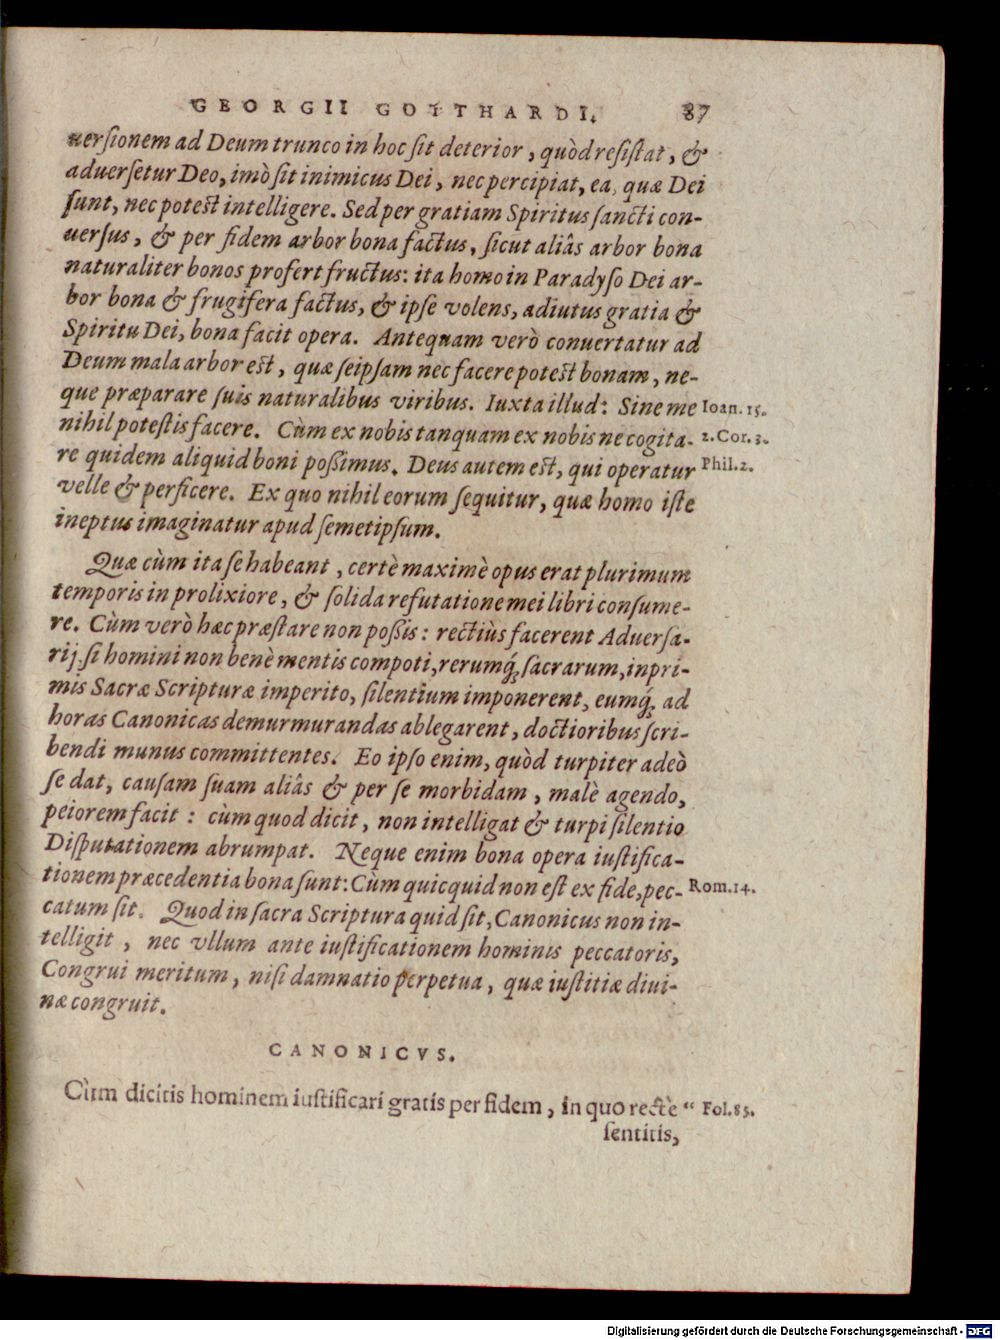 GEORGII GOTTHARDI. 87
uersionem ad Deum trunco in hoc sit deterior, quòd resistat, &
aduersetur Deo, imò sit inimicus Dei, nec percipiat, ea, quæ Dei
sunt, nec potest intelligere. Sed per gratiam Spiritus sancti con-
uersus, & per fidem arbor bona factus, sicut aliâs arbor bona
naturaliter bonos profert fructus: ita homo in Paradyso Dei ar-
bor bona & frugifera factus, & ipse volens, adiutus gratia &
Spiritu Dei, bona facit opera. Antequam verò conuertatur ad
Deum mala arbor est, quæ seipsam nec facere potest bonam, ne-
que præparare suis naturalibus viribus. Iuxta illud: Sine me Ioan. 15.
nihil potestis facere. Cùm ex nobis tanquam ex nobis ne cogita- 2. Cor. 3.
re quidem aliquid boni possimus. Deus autem est, qui operatur Phil. 2.
velle & perficere. Ex quo nihil eorum sequitur, quæ homo iste
ineptus imaginatur apud semetipsum.
Quæ cùm ita se habeant, certè maximè opus erat plurimum
temporis in prolixiore, & solida refutatione mei libri consume-
re. Cùm verò hæc præstare non possis: rectiùs facerent Aduersa-
rij, si homini non benè mentis compoti, rerumq́; sacrarum, inpri-
mis Sacræ Scripturæ imperito, silentium imponerent, eumq́; ad
horas Canonicas demurmurandas ablegarent, doctioribus scri-
bendi munus committentes. Eo ipso enim, quòd turpiter adeò
se dat, causam suam aliâs & per se morbidam, malè agendo,
peiorem facit: cùm quod dicit, non intelligat & turpi silentio
Disputationem abrumpat. Neque enim bona opera iustifica-
tionem præcedentia bona sunt: Cùm quicquid non est ex fide, pec- Rom. 14.
catum sit. Quod in sacra Scriptura quid sit, Canonicus non in-
telligit, nec vllum ante iustificationem hominis peccatoris,
Congrui meritum, nisi damnatio perpetua, quæ iustitiæ diui-
næ congruit.
CANONICVS.
Cùm dicitis hominem iustificari gratis per fidem, in quo rectè “ Fol. 85.
sentitis,
Digitalisierung gefördert durch die Deutsche Forschungsgemeinschaft - DFG